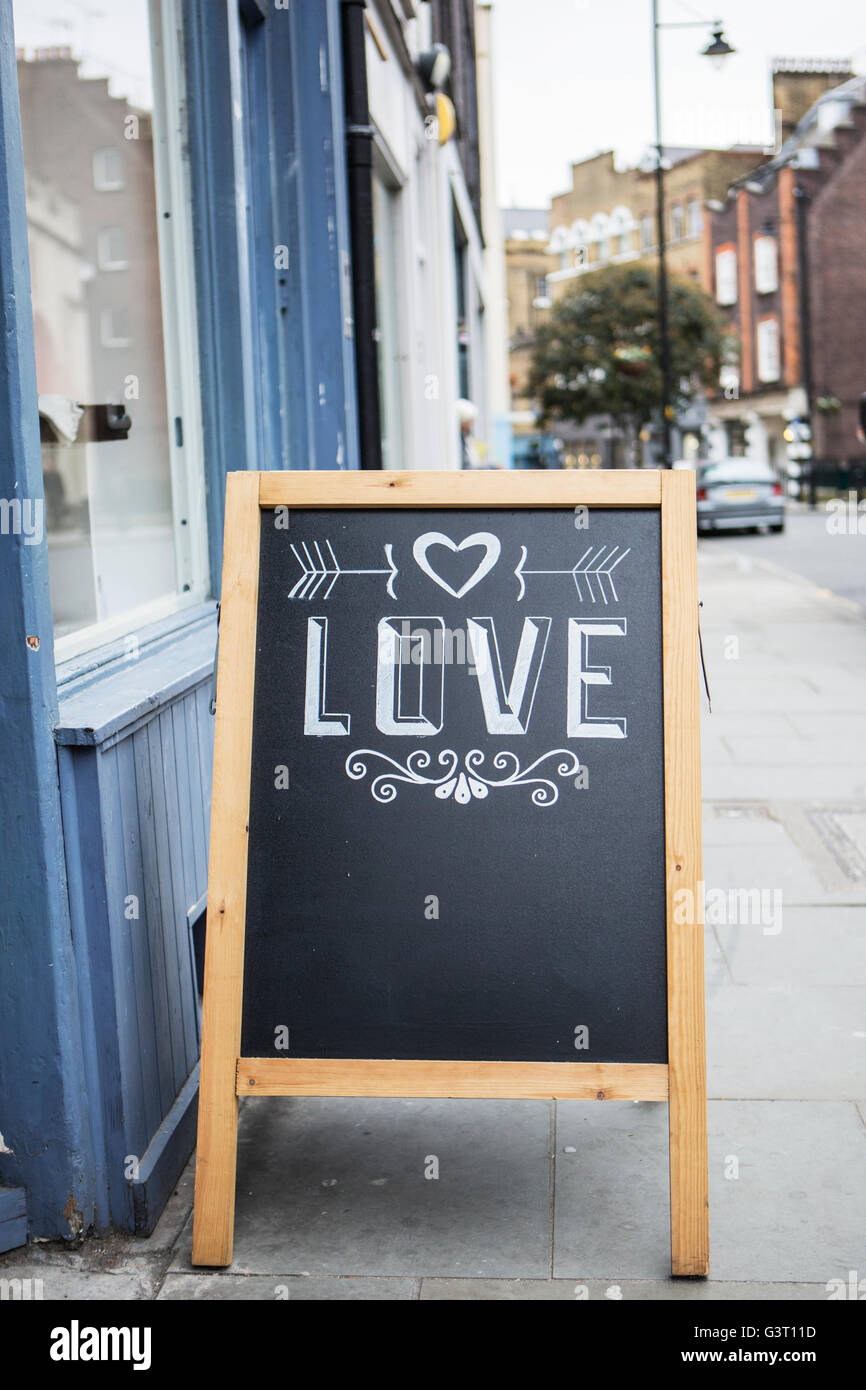 LOVE
alamy
Image ID: G3T11D
www.alamy.com